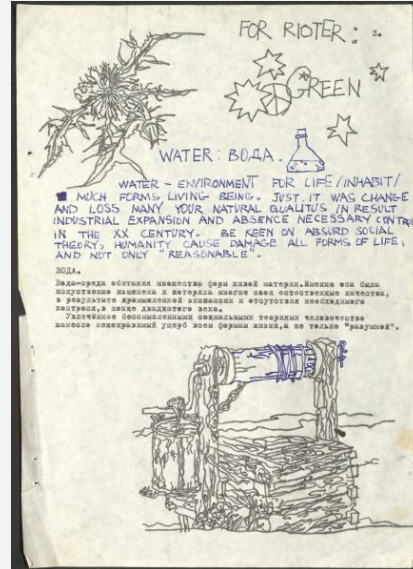 FOR RIOTER: 3.
GREEN
WATER: ВОДА.
WATER - ENVIRONMENT FOR LIFE /INHABIT/
MUCH FORMS, LIVING BEING. JUST, IT WAS CHANGE
AND LOSS MANY YOUR NATURAL QUALITUS IN RESULT
INDUSTRIAL EXPANSION AND ABSENCE NECESSARY CONTROL
IN THE XX CENTURY. BE KEEN ON ABSURD SOCIAL
THEORY, HUMANITY CAUSE DAMAGE ALL FORMS OF LIFE,
AND NOT ONLY "REASONABLE".
ВОДА.
Вода-среда обитания множества форм живой материи.Именно она была
искуственно изменена и потеряла многие свои естественные качества,
в результате промышленной экспансии и отсутствия необходимого
контроля,в конце двадцатого века.
Увлечённое бессмысленными социальными теориями человечество
нанесло непоправимый ущерб всем формам жизни,а не только "разумной".